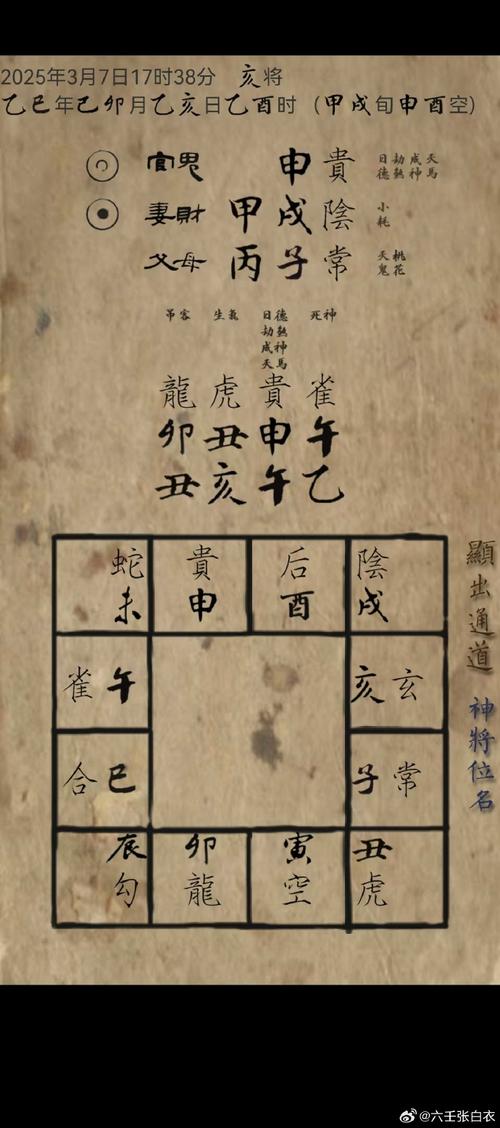 2025年3月7日17时38分 亥将
乙巳年己卯月乙亥日乙酉时（甲戌旬申酉空）
官鬼 申 貴 日德 劫煞 成神 天馬
妻財 甲戌 陰 小耗
父母 丙子 常 天鬼 桃花
吊客 生氣 日德 劫煞 成神 天馬 死神
龍 虎 貴 雀
卯 丑 申 午
丑 亥 午 乙
蛇 貴 后 陰
未 申 酉 戌
雀 午 亥 玄
合 巳 子 常
辰 卯 寅 丑
勾 龍 空 虎
顯出通道
神將位名
@六壬张白衣